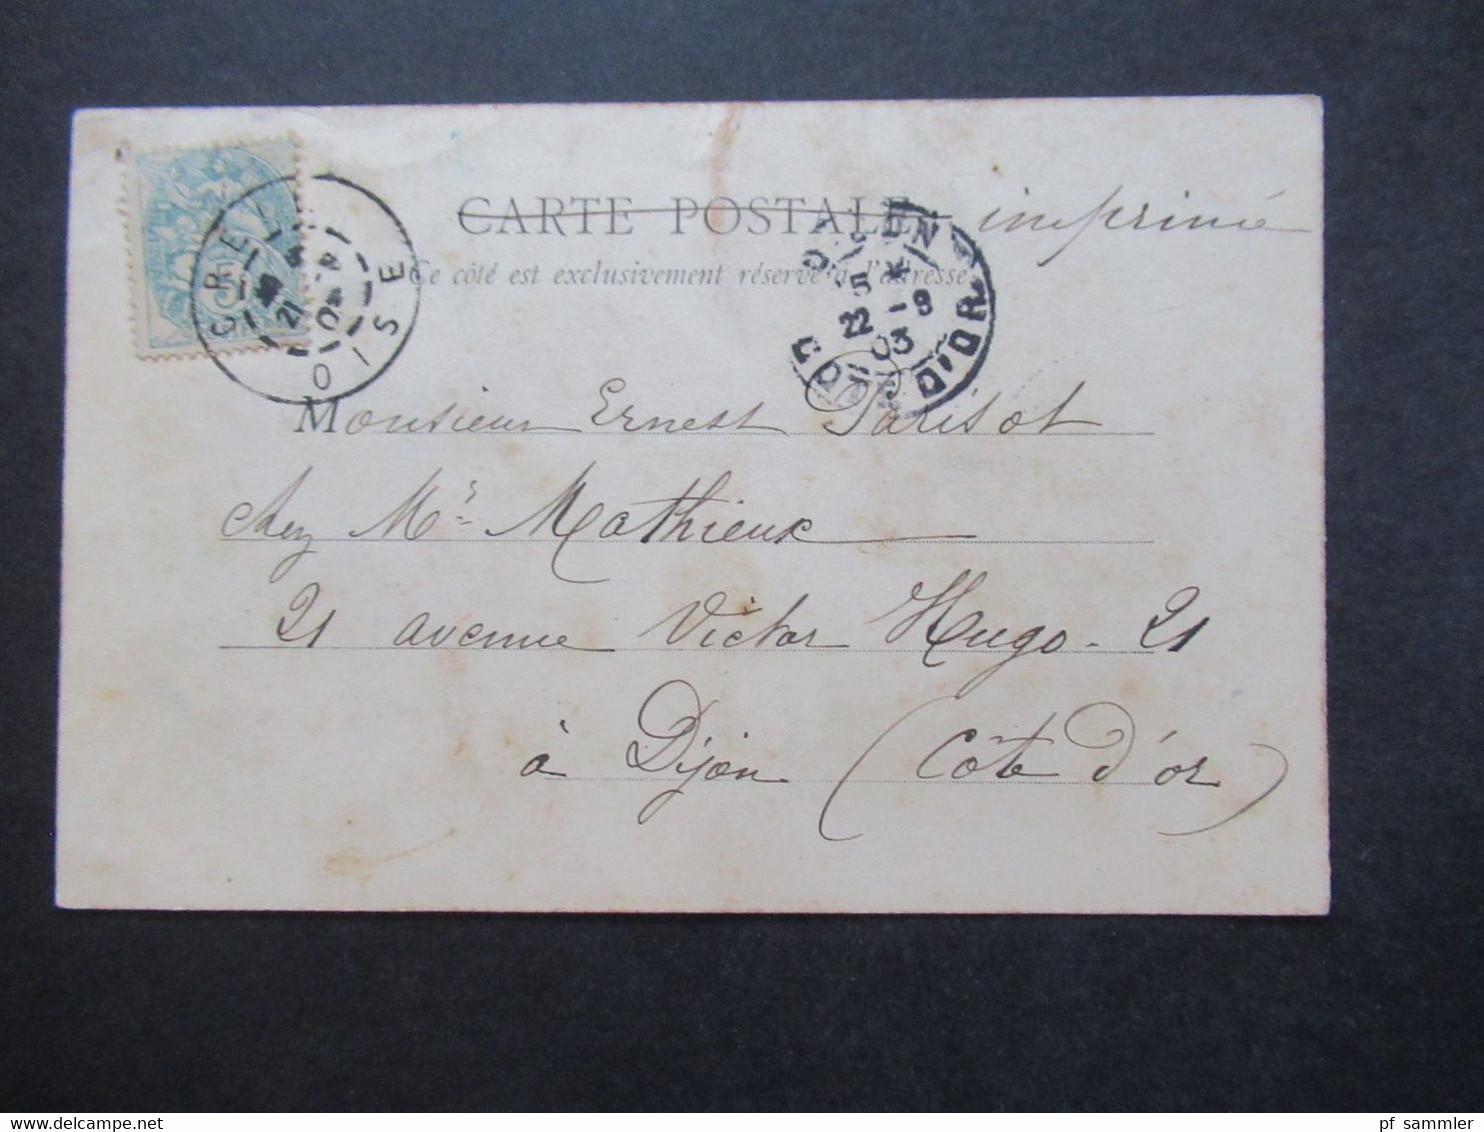 CARTE POSTALE imprimé
Ce côté est exclusivement réservé à l'adresse
CREIL
OISE
21
04
DIJON
5
22 -8
03
COTE D'OR
Monsieur Ernest Parisot
chez Mr Mathieux
21 avenue Victor Hugo - 21
à Dijon (Côte d'or)
pf sammler